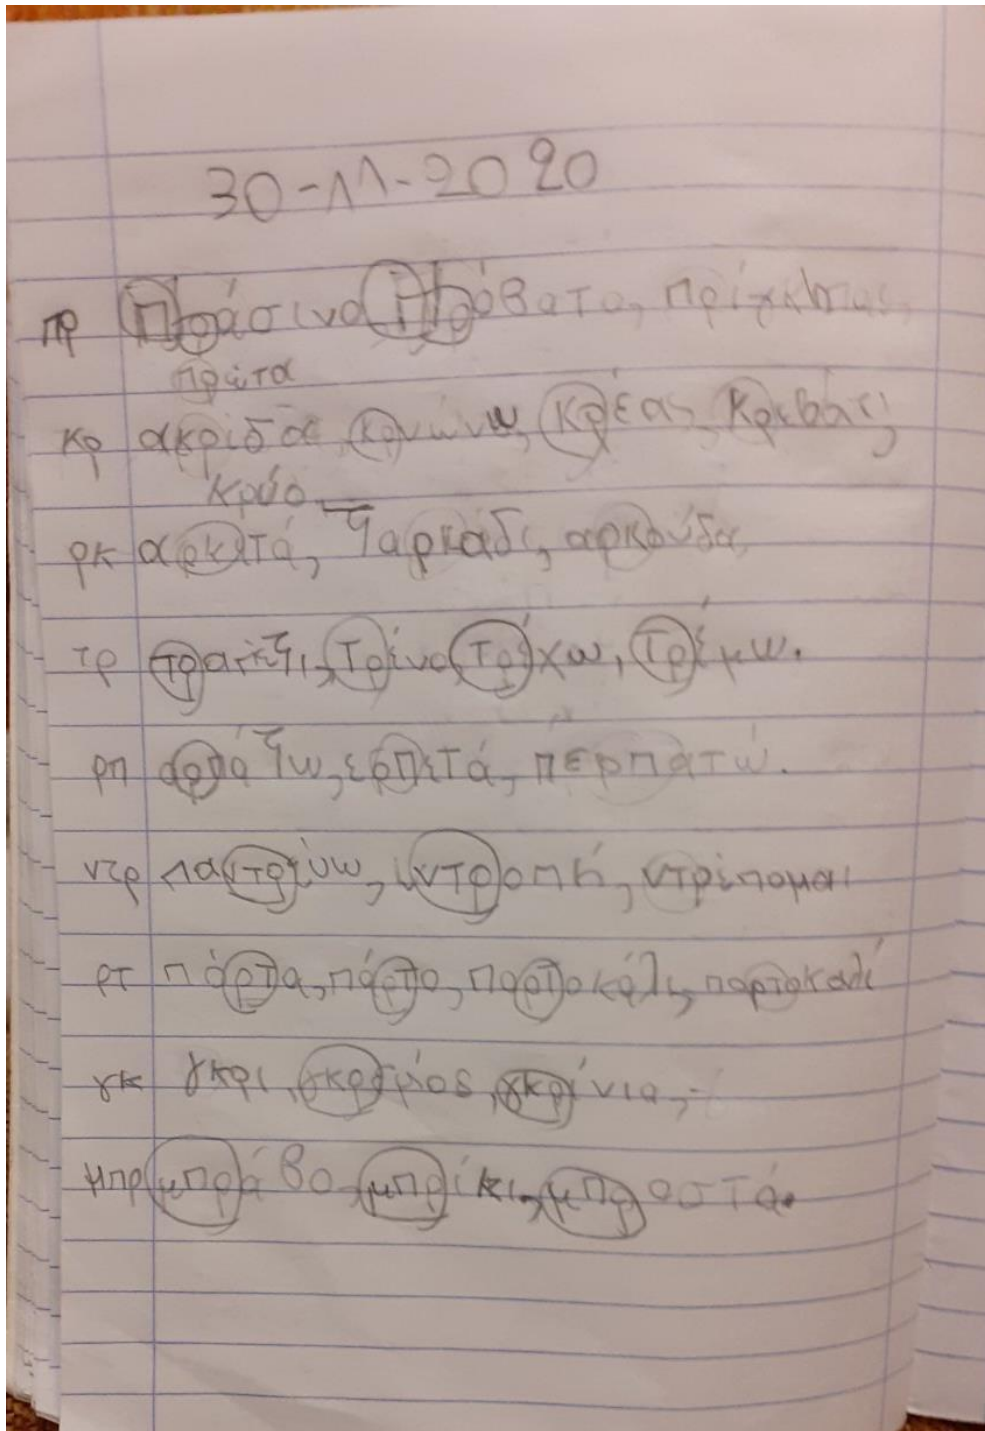 30-11-2020
πρ Πράσινο Πρόβατο, πρίγκιπας,
πρώτα
κρ ακρίδα, κρυώνω, κρέας, κρεβάτι,
κρύο
ρκ αρκετά, ζαρκάδι, αρκούδα
τρ τραπέζι, τρένο, τρέχω, τρέμω.
ρπ αρπάζω, ερπετά, περπατώ.
ντρ παντρεύω, ντροπή, ντρέπομαι
ρτ πόρτα, πόρτο, πορτοκάλι, πορτοκαλί
γκ γκρι, γκρεμός, γκρίνια,
μπρ μπράβο, μπρίκι, μπροστά.